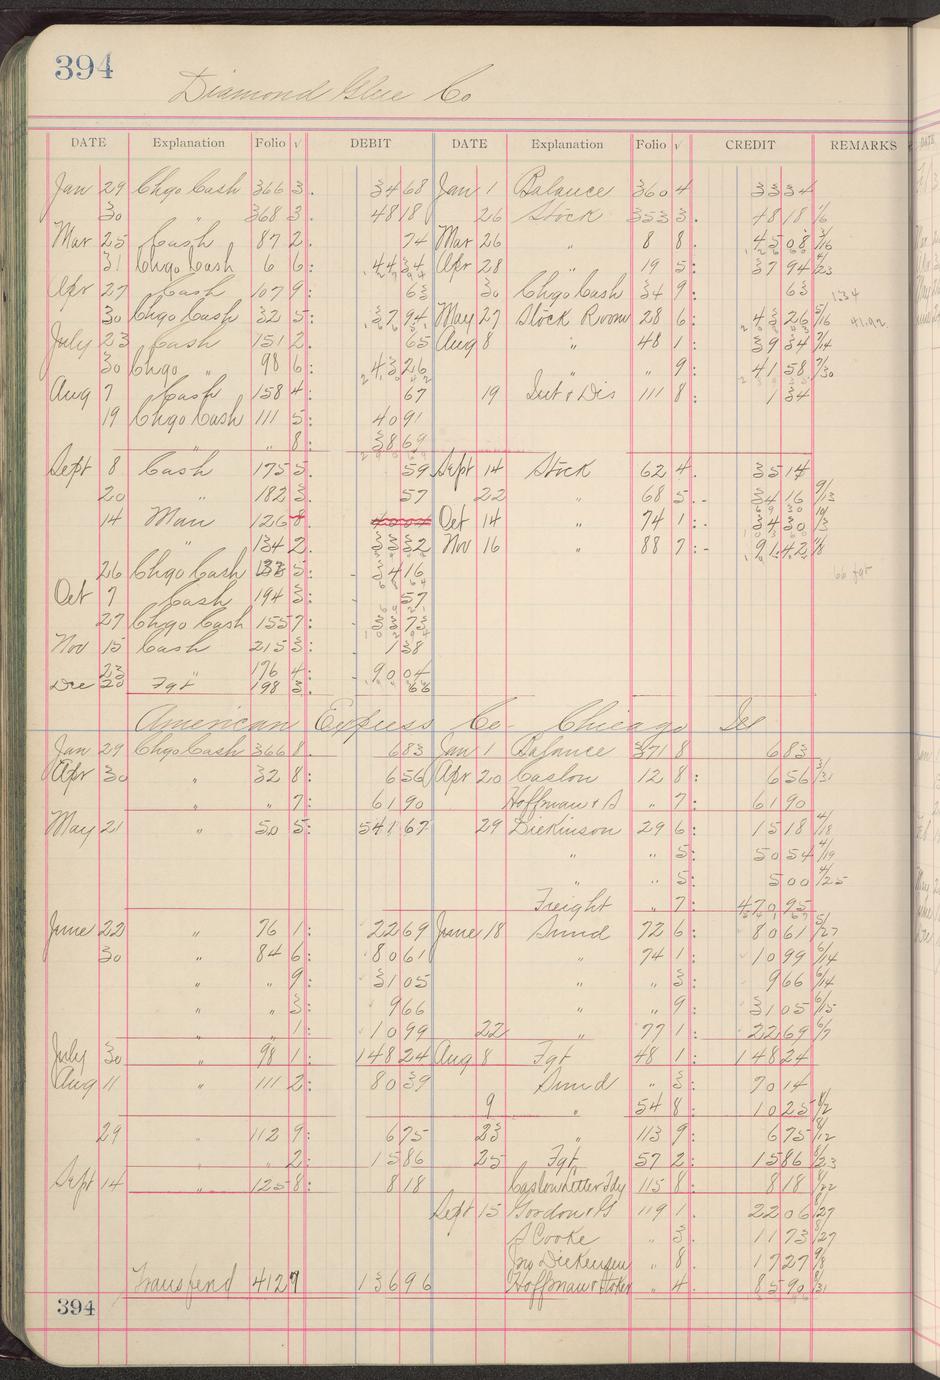 394
Diamond Glue Co
DATE Explanation Folio √ DEBIT DATE Explanation Folio √ CREDIT REMARKS
Jan 29 Chgo Cash 366 3. 34 68 Jan 1 Balance 360 4 33 34
30 " 368 3. 48 18 26 Stock 353 3. 48 18 1/6
Mar 25 Cash 87 2. 74 Mar 26 " 8 8. 45 08 3/16
31 Chgo Cash 6 6: 44 34 Apr 28 " 19 5: 37 94 4/23
Apr 27 Cash 107 9: 63 30 Chgo Cash 34 9: 63 134
30 Chgo Cash 32 5: 37 94 May 27 Stock Room 28 6: 43 26 5/16 41.92
July 23 Cash 151 2. 65 Aug 8 " 48 1: 39 34 7/14
30 Chgo " 98 6: 43 26 " " 9: 41 58 7/30
Aug 7 Cash 158 4: 67 19 Int & Dis 111 8: 1 34
19 Chgo Cash 111 5: 40 91
" " 8: 38 69
Sept 8 Cash 175 5. 59 Sept 14 Stock 62 4. 35 14
20 " 182 3. 57 22 " 68 5.- 34 16 9/13
14 Man 126 8. Oct 14 " 74 1:- 34 30 10/3
" 134 2. 33 32 Nov 16 " 88 7:- 91.42
26 Chgo Cash 5: - 34 16 66 fgt
Oct 7 Cash 194 3: 57
27 Chgo Cash 155 7: - 33 73
Nov 15 Cash 215 3: - 1 38
23 " 176 4: - 90 04
Dec 20 Fgt 198 3. 66
American Express Co- Chicago Ill
Jan 29 Chgo Cash 366 8. 6 83 Jan 1 Balance 371 8 6 83
Apr 30 " 32 8: 6 56 Apr 20 Caslon 12 8: 6 56 3/31
" " 7: 61 90 Hoffman & S " 7: 61 90
May 21 " 50 5: 541 67 29 Dickinson 29 6: 15 18 4/18
" " 5: 50 54 4/19
" " 5: 5 00 4/25
Freight " 7: 470 95
June 22 " 76 1: 22 69 June 18 Sund 72 6: 80 61 5/27
30 " 84 6: 80 61 " 74 1: 10 99 6/14
" " 9: 31 05 " " 3: 9 66 6/14
" " 3: 9 66 " " 9: 31 05 6/15
" " 1: 10 99 22 " 77 1: 22 69 6/7
July 30 " 98 1: 148 24 Aug 8 Fgt 48 1: 148 24
Aug 11 " 111 2: 80 39 Sund " 3: 70 14
9 " 54 8: 10 25 8/2
29 " 112 9: 6 75 23 " 113 9: 6 75 8/12
" " 2: 15 86 25 Fgt 57 2: 15 86 8/23
Sept 14 " 125 8: 8 18 Caslon Letter Fdy 115 8: 8 18 8/22
Sept 15 Gordon & G 119 1. 22 06 8/27
S Cooke " 3. 11 73 8/27
Jno Dickensen " 8. 17 27 9/8
Transferd 412 7 136 96 Hoffman & Stoker " 4. 85 90 8/31
394